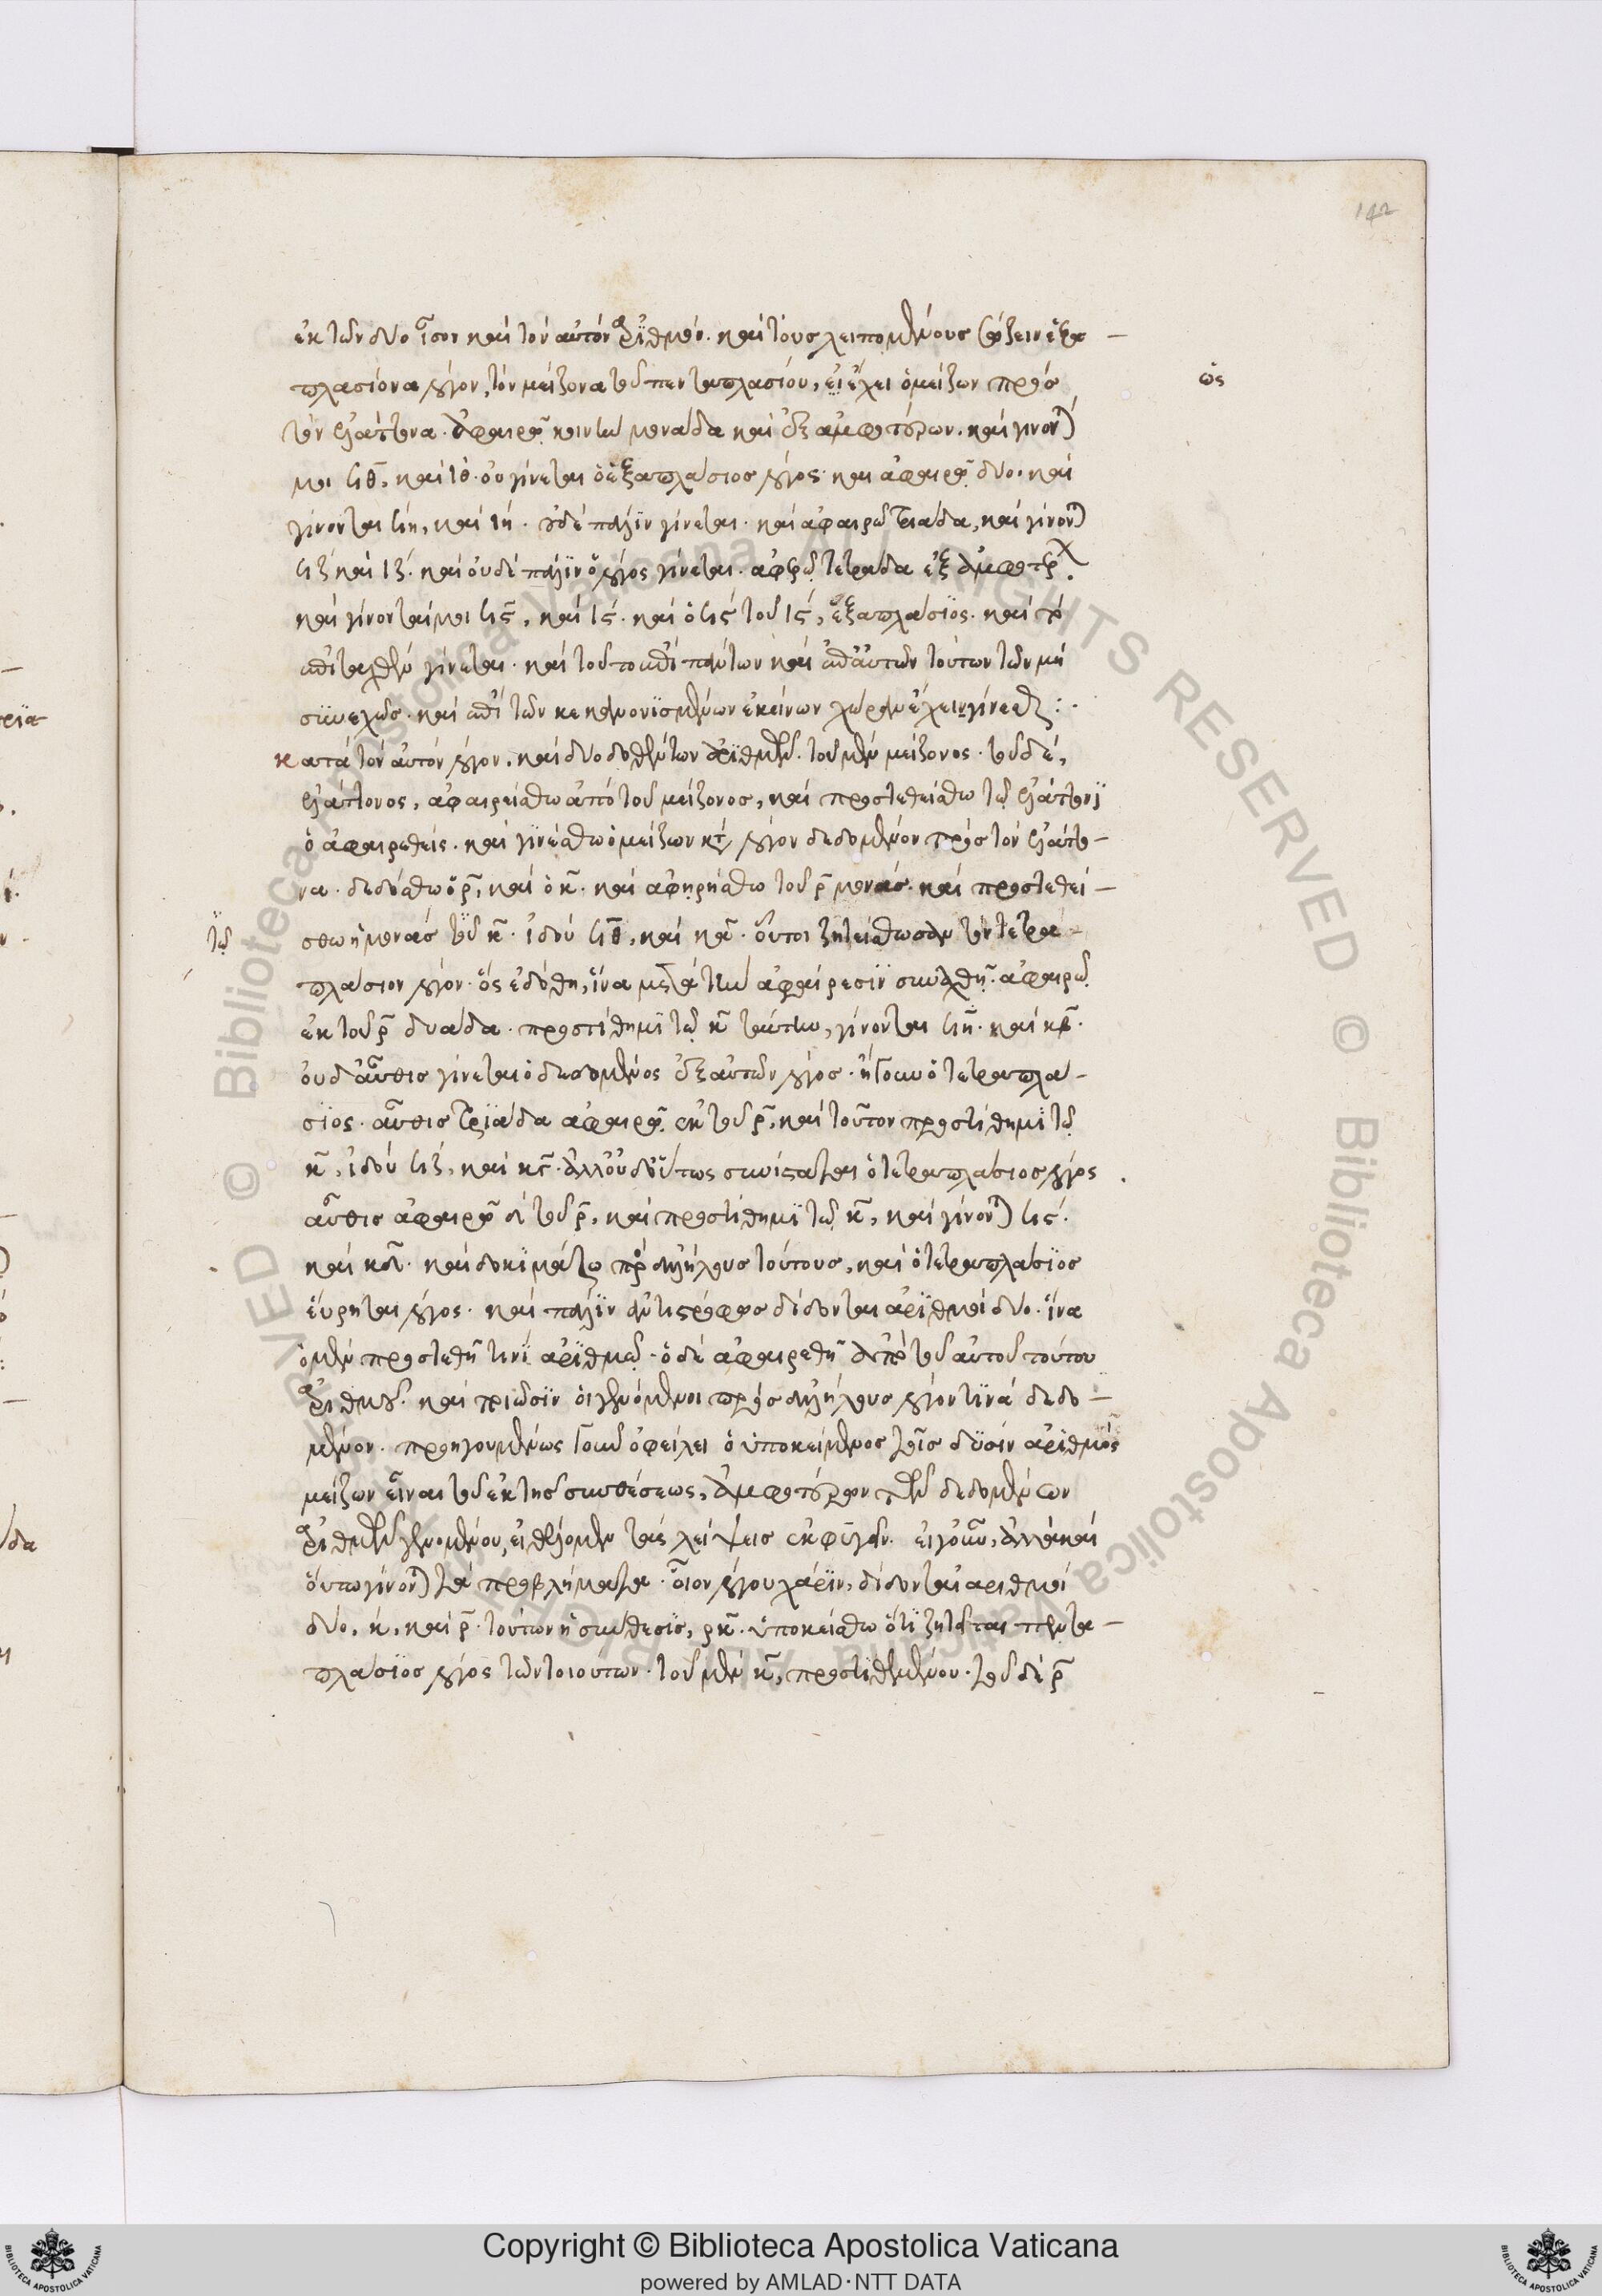 142
ἐκ τῶν δύο ἴσον καὶ τὸν αὐτὸν ἀριθμόν. καὶ τοὺς λειπομένους σώζειν ἑξα —
πλασίονα λόγον, τὸν μείζονα τοῦ πενταπλασίου, εἰ ἔχει ὁ μείζων πρὸς
ὡς
τὸν ἐλάττονα. ἀφαιρῶ κοινὴν μονάδα καὶ ἐξ ἀμφοτέρων. καὶ γίνονται
μοι ϟθ, καὶ ιθ. οὐ γίνεται ὁ ἑξαπλάσιος λόγος. καὶ ἀφαιρῶ δύο. καὶ
γίνονται ϟη, καὶ ιη. οὐδὲ πάλιν γίνεται. καὶ ἀφαιρῶ τριάδα, καὶ γίνονται
ϟζ καὶ ιζ. καὶ οὐδὲ πάλιν ὁ λόγος γίνεται. ἀφαιρῶ τετράδα ἐξ ἀμφοτέρων
καὶ γίνονταί μοι ϟς, καὶ ις. καὶ ὁ ϟς τοῦ ις, ἑξαπλάσιος. καὶ τὸ
γίνεται. καὶ τοῦτο πάντων καὶ τούτων τῶν μὴ
συνεχῶς. καὶ τῶν κεκανονισμένων ἐκείνων χώραν ἔχειν γίνεσθαι :·
κατὰ τὸν αὐτὸν λόγον. καὶ δύο δοθέντων ἀριθμῶν. τοῦ μὲν μείζονος. τοῦ δὲ,
ἐλάττονος, ἀφαιρείσθω ἀπὸ τοῦ μείζονος, καὶ προστεθείσθω τῷ ἐλάττονι
ὁ ἀφαιρεθείς. καὶ γινέσθω ὁ μείζων κατὰ λόγον δεδομένον πρὸς τὸν ἐλάττο —
να. δεδόσθω ὁ ρ, καὶ ὁ κ. καὶ ἀφῃρήσθω τοῦ ρ μονάς. καὶ προστεθεί —
τῷ
σθω ἡ μονὰς τοῦ κ. ἰδοὺ ϟθ, καὶ κα. οὗτοι ζητείσθωσαν τὸν τετρα —
πλάσιον λόγον. ὃς ἐδόθη, ἵνα μετὰ τὴν ἀφαίρεσιν σωθῇ. ἀφαιρῶ
ἐκ τοῦ ρ δυάδα. προστίθημι τῷ κ ταύτην, γίνονται ϟη. καὶ κβ.
οὐδ' αὖθις γίνεται ὁ δεδομένος ἐξ αὐτῶν λόγος. ἤγουν ὁ τετραπλά —
σιος. αὖθις τριάδα ἀφαιρῶ ἐκ τοῦ ρ, καὶ τοῦτον προστίθημι τῷ
κ, ἰδοὺ ϟζ, καὶ κγ. ἀλλ' οὐδ' οὕτως συνίσταται ὁ τετραπλάσιος λόγος
αὖθις ἀφαιρῶ δ τοῦ ρ, καὶ προστίθημι τῷ κ, καὶ γίνονται ϟς.
καὶ κδ. καὶ δοκιμάζω πρὸς ἀλλήλους τούτους, καὶ ὁ τετραπλάσιος
εὕρηται λόγος. καὶ πάλιν ἀντιστρόφως δίδονται ἀριθμοὶ δύο. ἵνα
ὁ μὲν προστεθῇ τινὶ ἀριθμῷ. ὁ δὲ ἀφαιρεθῇ ἀπὸ τοῦ αὐτοῦ τούτου
ἀριθμοῦ. καὶ ποιῶσιν οἱ γενόμενοι πρὸς ἀλλήλους λόγον τινὰ δεδο —
μένον. προηγουμένως γοῦν ὀφείλει ὁ ὑποκείμενος τοῖς δυσὶν ἀριθμὸς
μείζων εἶναι τοῦ ἐκ τῆς συνθέσεως, ἀμφοτέρων τῶν δεδομένων
ἀριθμῶν γενομένου, εἰ θέλομεν τὰς λείψεις ἐκφυγεῖν. εἰ γοῦν, ἀλλὰ καὶ
οὕτω γίνονται τὰ προβλήματα. οἷον λόγου χάριν, δίδονται ἀριθμοὶ
δύο, κ, καὶ ρ. τούτων ἡ σύνθεσις, ρκ. ὑποκείσθω ὅτι ζητεῖται πεντα —
πλάσιος λόγος τῶν τοιούτων. τοῦ μὲν κ, προστιθεμένου. τοῦ δὲ ρ
Copyright © Biblioteca Apostolica Vaticana
powered by AMLAD·NTT DATA